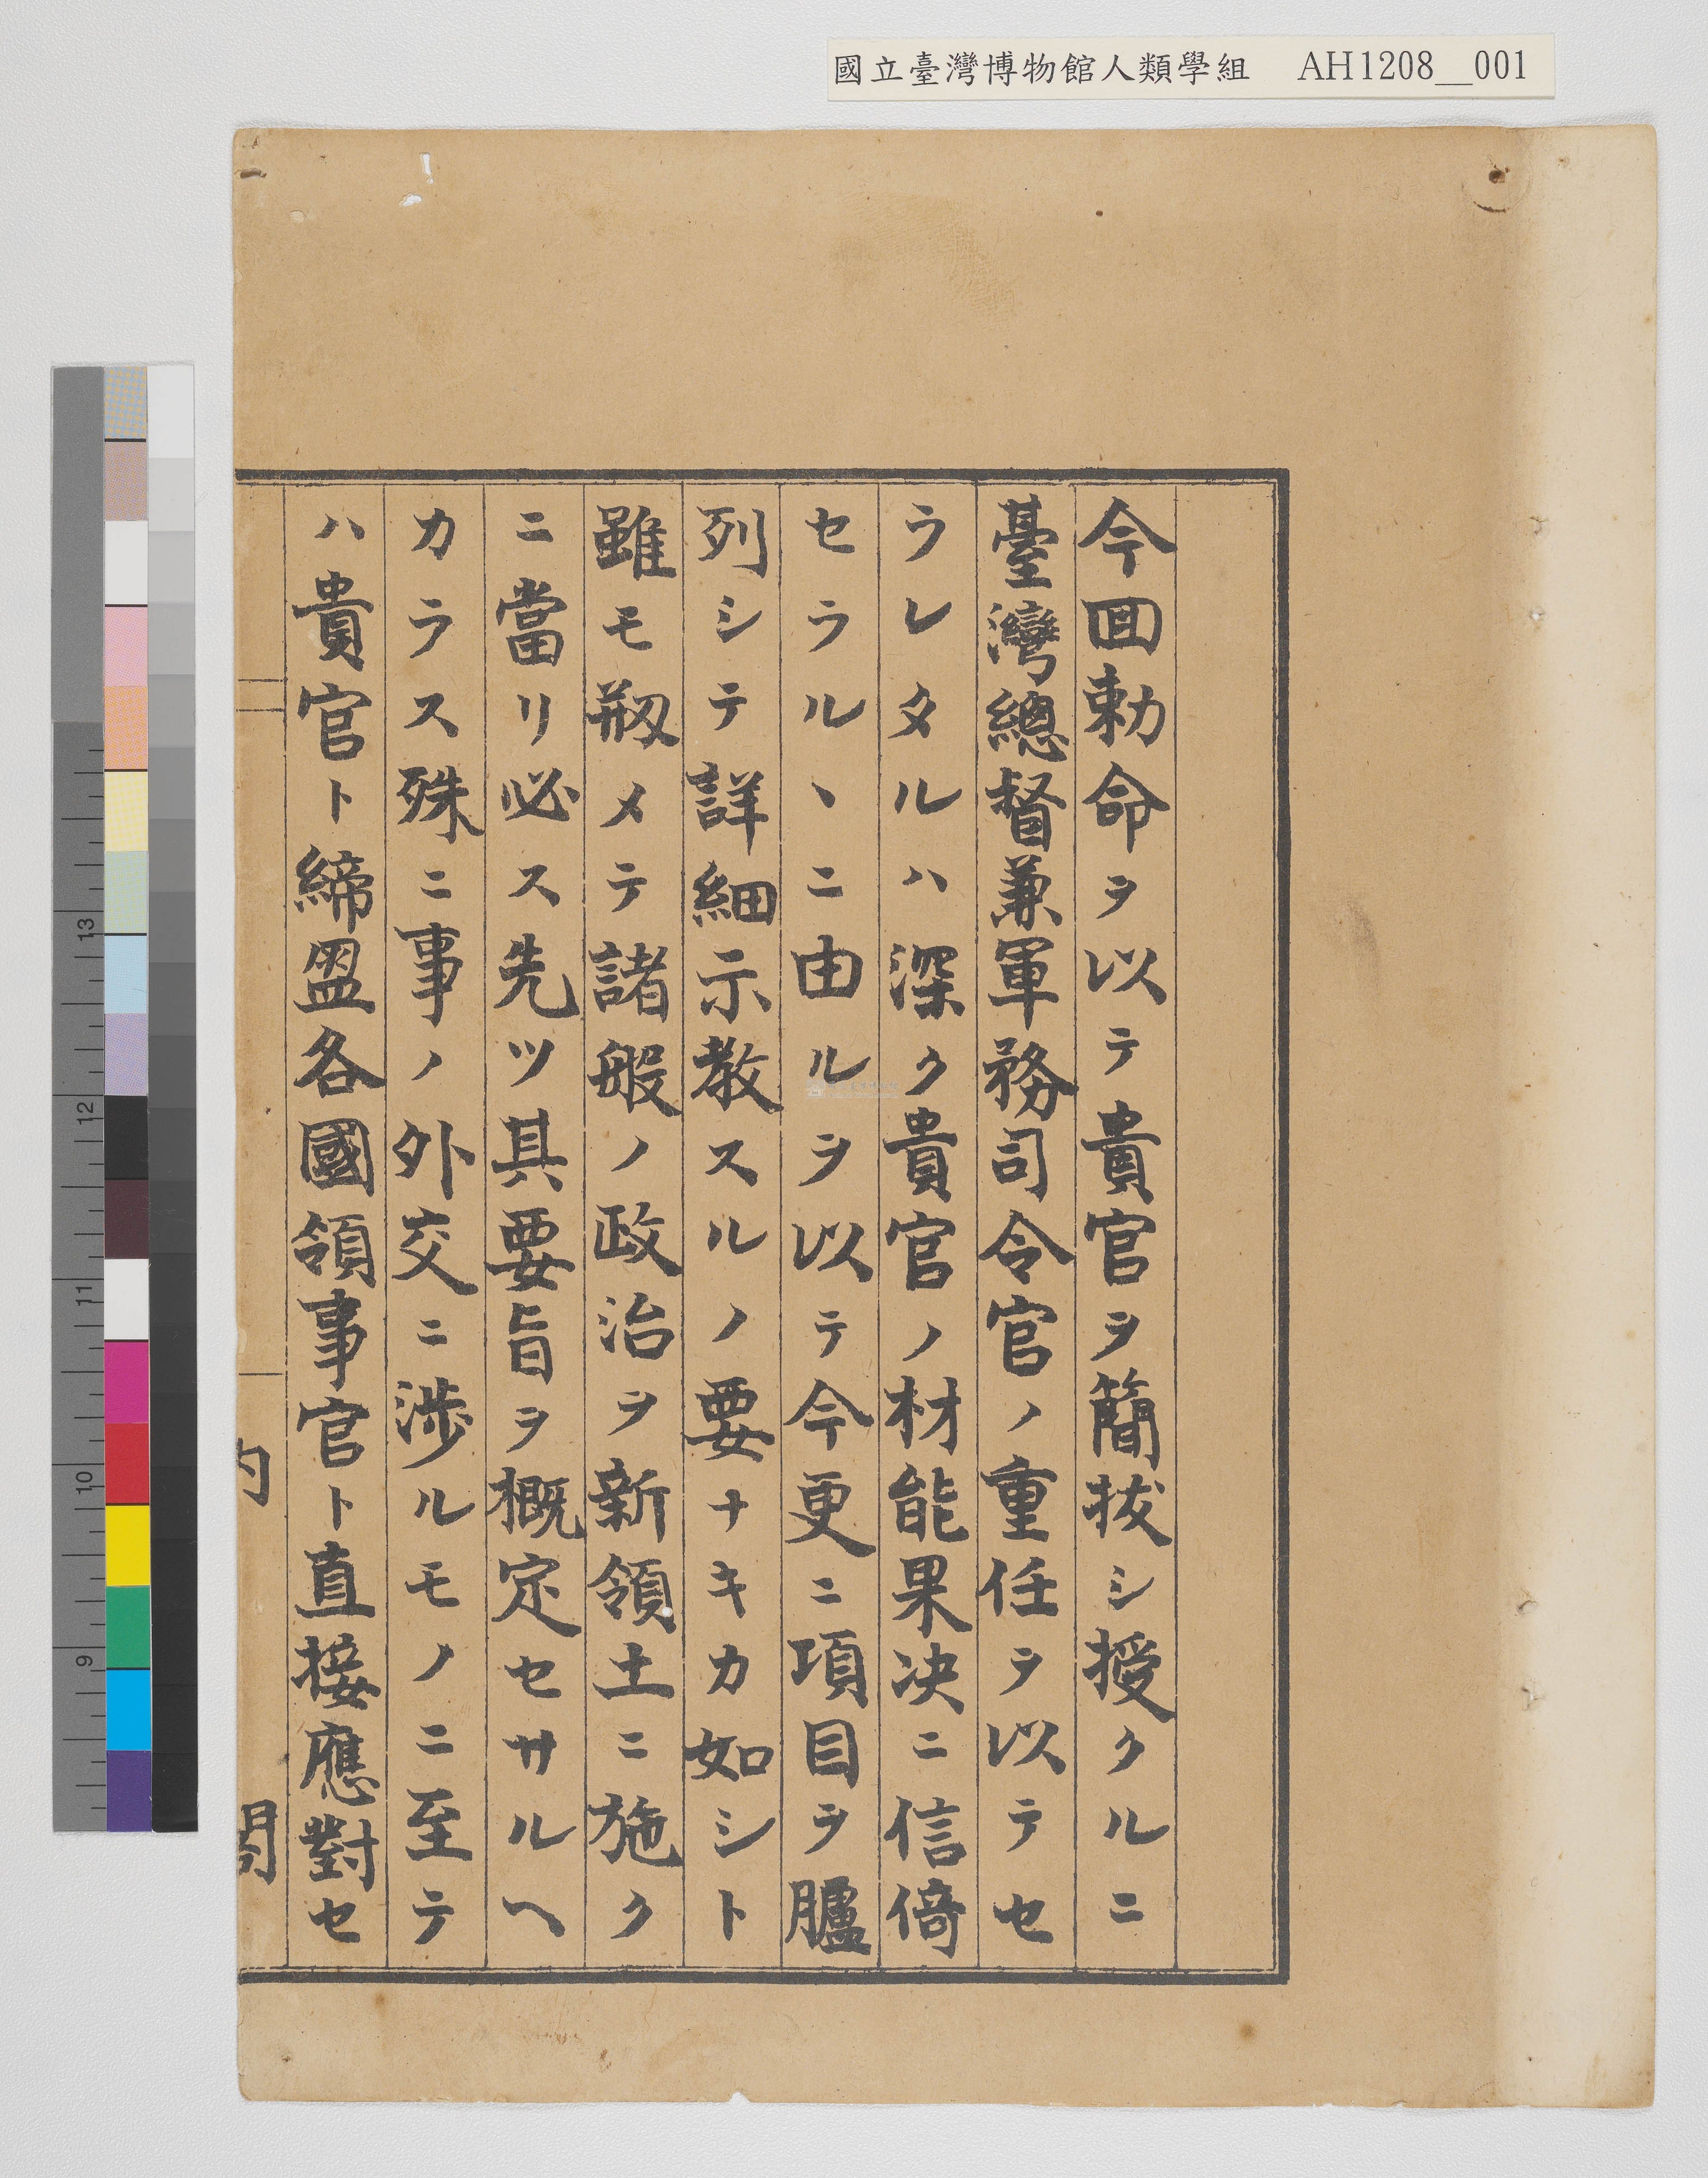 國立臺灣博物館人類學組 AH1208__001
今回勅命ヲ以テ貴官ヲ簡拔シ授クルニ
臺灣總督兼軍務司令官ノ重任ヲ以テセ
ラレタルハ深ク貴官ノ材能果決ニ信倚
セラルヽニ由ルヲ以テ今更ニ項目ヲ臚
列シテ詳細示教スルノ要ナキカ如シト
雖モ剏メテ諸般ノ政治ヲ新領土ニ施ク
ニ當リ必ス先ツ其要旨ヲ概定セサルヘ
カラス殊ニ事ノ外交ニ渉ルモノニ至テ
ハ貴官ト締盟各國領事官ト直接應對セ
内閣
13
12
11
10
9